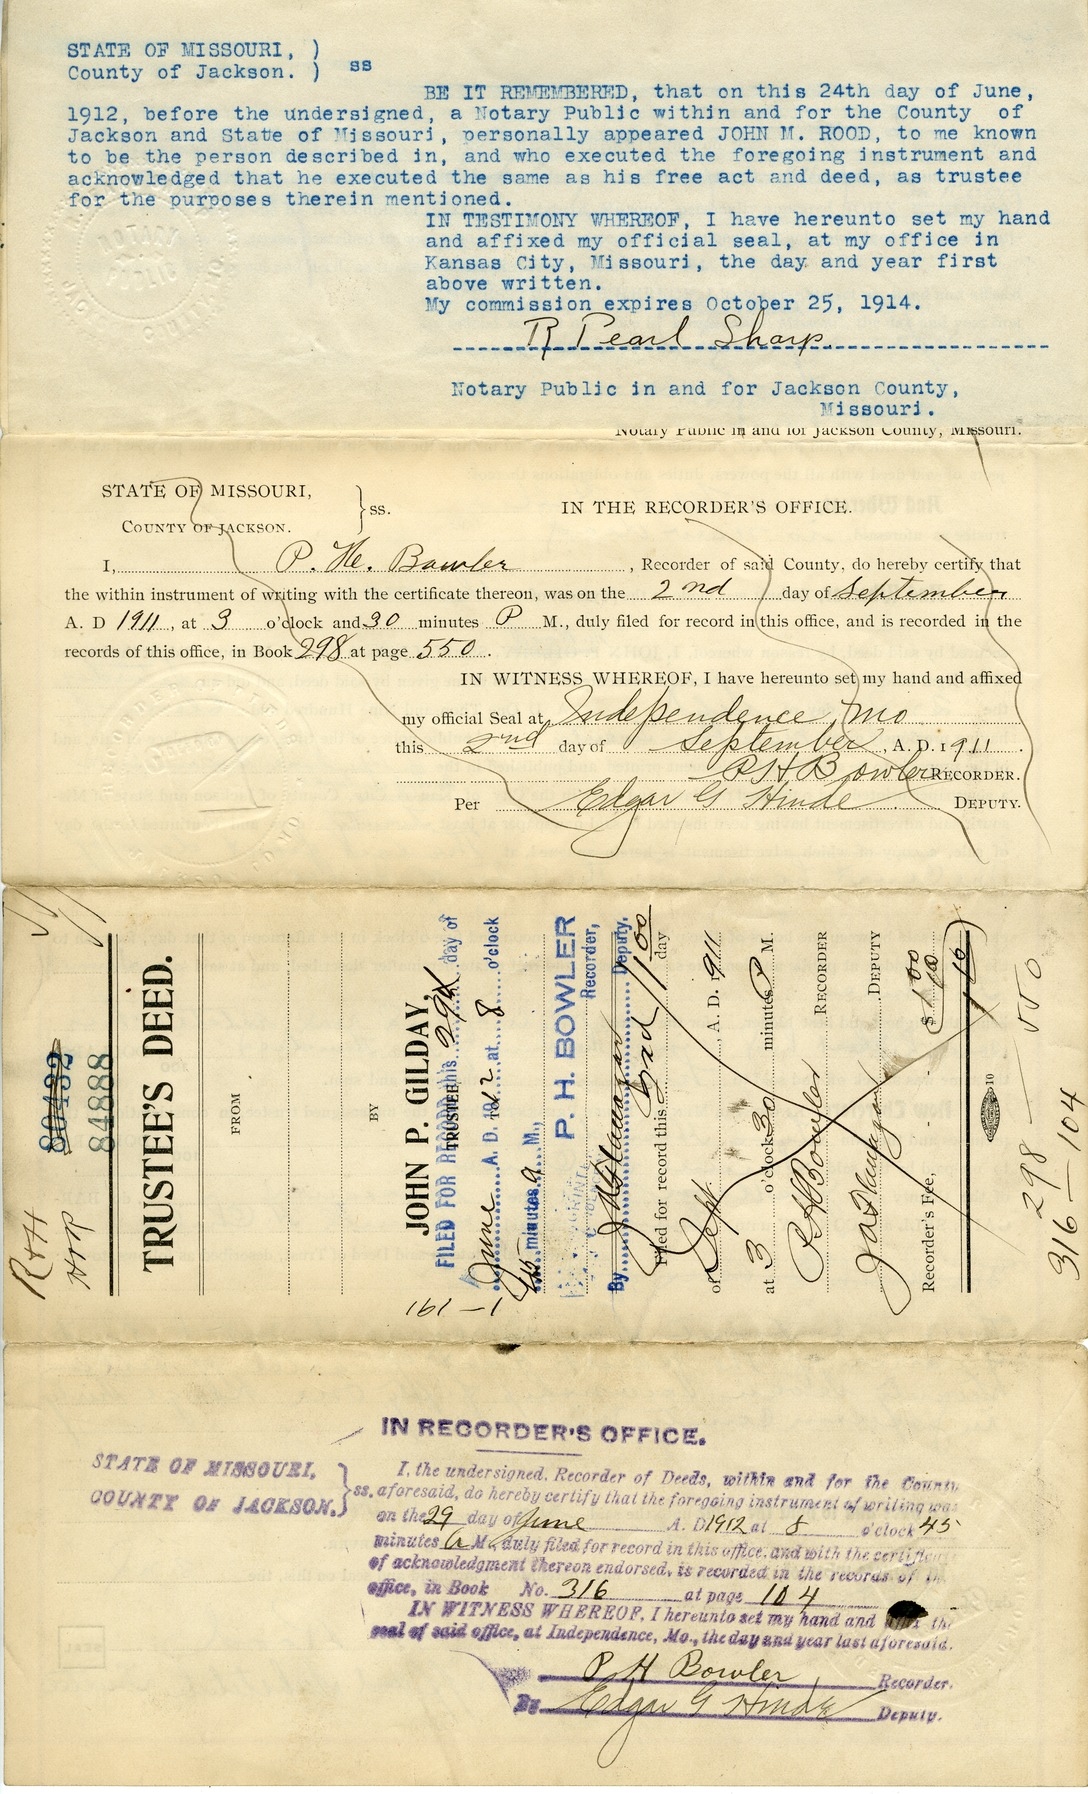 STATE OF MISSOURI, )
County of Jackson. ) ss
BE IT REMEMBERED, that on this 24th day of June,
1912, before the undersigned, a Notary Public within and for the County of
Jackson and State of Missouri, personally appeared JOHN M. ROOD, to me known
to be the person described in, and who executed the foregoing instrument and
acknowledged that he executed the same as his free act and deed, as trustee
for the purposes therein mentioned.
IN TESTIMONY WHEREOF, I have hereunto set my hand
and affixed my official seal, at my office in
Kansas City, Missouri, the day and year first
above written.
My commission expires October 25, 1914.
R Pearl Sharp
Notary Public in and for Jackson County,
Missouri.
Notary Public in and for Jackson County, Missouri.
STATE OF MISSOURI,
COUNTY OF JACKSON. } ss.
IN THE RECORDER'S OFFICE.
I, P. H. Bowler, Recorder of said County, do hereby certify that
the within instrument of writing with the certificate thereon, was on the 2nd day of September
A. D 1911, at 3 o'clock and 30 minutes P M., duly filed for record in this office, and is recorded in the
records of this office, in Book 298 at page 550.
IN WITNESS WHEREOF, I have hereunto set my hand and affixed
my official Seal at Independence, Mo
this 2nd day of September, A. D. 1911.
P H Bowler RECORDER.
Per Edgar G Hinde DEPUTY.
R&H
80432
84888
TRUSTEE'S DEED.
FROM
BY
JOHN P. GILDAY,
TRUSTEE
FILED FOR RECORD this 29th day of
June A. D. 1912 at 8 o'clock
45 minutes a M.,
161-1
P. H. BOWLER
Recorder,
By Deputy.
Filed for record this 2nd day
1 00
of Sept, A. D. 1911
at 3 o'clock 30 minutes P M.
P H Bowler RECORDER
DEPUTY
Recorder's Fee, - - $1.00
10
1 10
10
298 — 550
316 — 104
IN RECORDER'S OFFICE.
STATE OF MISSOURI,
COUNTY OF JACKSON. } ss.
I, the undersigned, Recorder of Deeds, within and for the County
aforesaid, do hereby certify that the foregoing instrument of writing was
on the 29 day of June A. D 1912 at 8 o'clock 45
minutes a M. duly filed for record in this office, and with the certificate
of acknowledgment thereon endorsed, is recorded in the records of
office, in Book No. 316 at page 104
IN WITNESS WHEREOF, I hereunto set my hand and affix the
seal of said office, at Independence, Mo., the day and year last aforesaid.
P H Bowler Recorder.
By Edgar G Hinde Deputy.